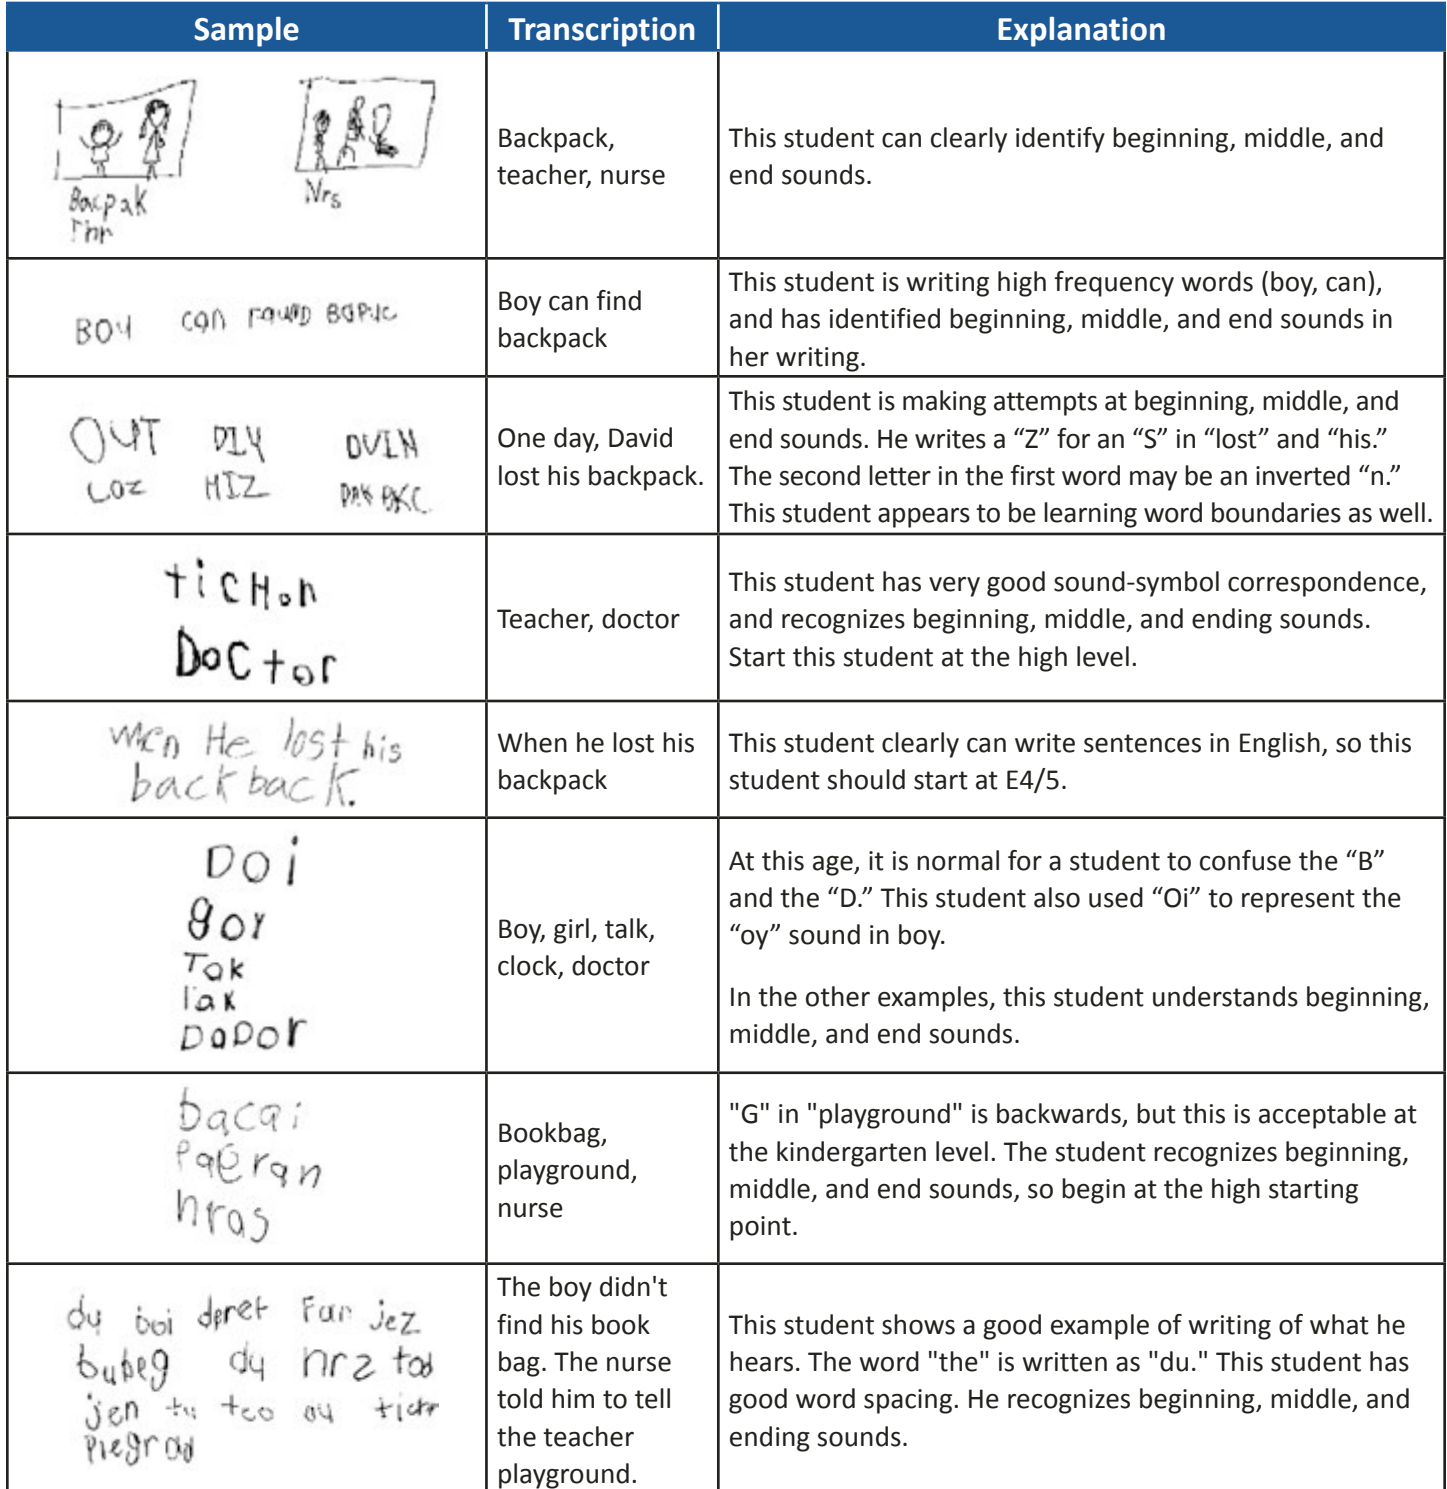 Sample Transcription Explanation
Bacpak
Thr
Nrs
Backpack,
teacher, nurse
This student can clearly identify beginning, middle, and
end sounds.
BOY can faund
Boy can find
backpack
This student is writing high frequency words (boy, can),
and has identified beginning, middle, and end sounds in
her writing.
OUT DIY DVIN
LOZ HIZ
One day, David
lost his backpack.
This student is making attempts at beginning, middle, and
end sounds. He writes a “Z” for an “S” in “lost” and “his.”
The second letter in the first word may be an inverted “n.”
This student appears to be learning word boundaries as well.
DoCtor
Teacher, doctor
This student has very good sound-symbol correspondence,
and recognizes beginning, middle, and ending sounds.
Start this student at the high level.
wen He lost his
back back.
When he lost his
backpack
This student clearly can write sentences in English, so this
student should start at E4/5.
DOi
gor
Tak
DaDor
Boy, girl, talk,
clock, doctor
At this age, it is normal for a student to confuse the “B”
and the “D.” This student also used “Oi” to represent the
“oy” sound in boy.
In the other examples, this student understands beginning,
middle, and end sounds.
bacai
nras
Bookbag,
playground,
nurse
"G" in "playground" is backwards, but this is acceptable at
the kindergarten level. The student recognizes beginning,
middle, and end sounds, so begin at the high starting
point.
du boi Fan jez
bubeg du nrz
jen
The boy didn't
find his book
bag. The nurse
told him to tell
the teacher
playground.
This student shows a good example of writing of what he
hears. The word "the" is written as "du." This student has
good word spacing. He recognizes beginning, middle, and
ending sounds.